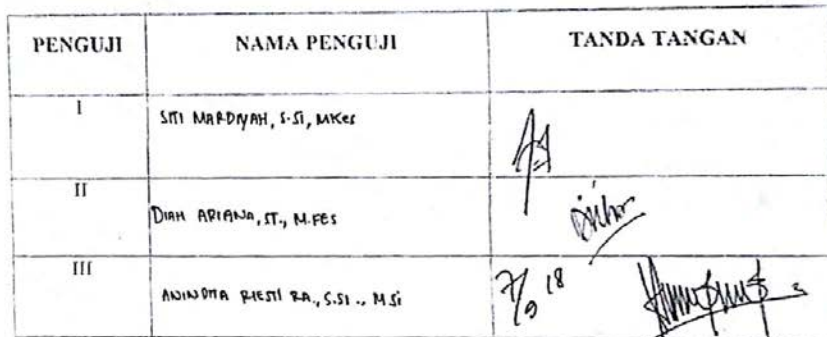 PENGUJI NAMA PENGUJI TANDA TANGAN
I SITI MARDIYAH, S.Si, MKes
II DIAH ARIANA, ST., M.KES
III ANINDITA RIESTI RA., S.Si., M.Si 7/9 18